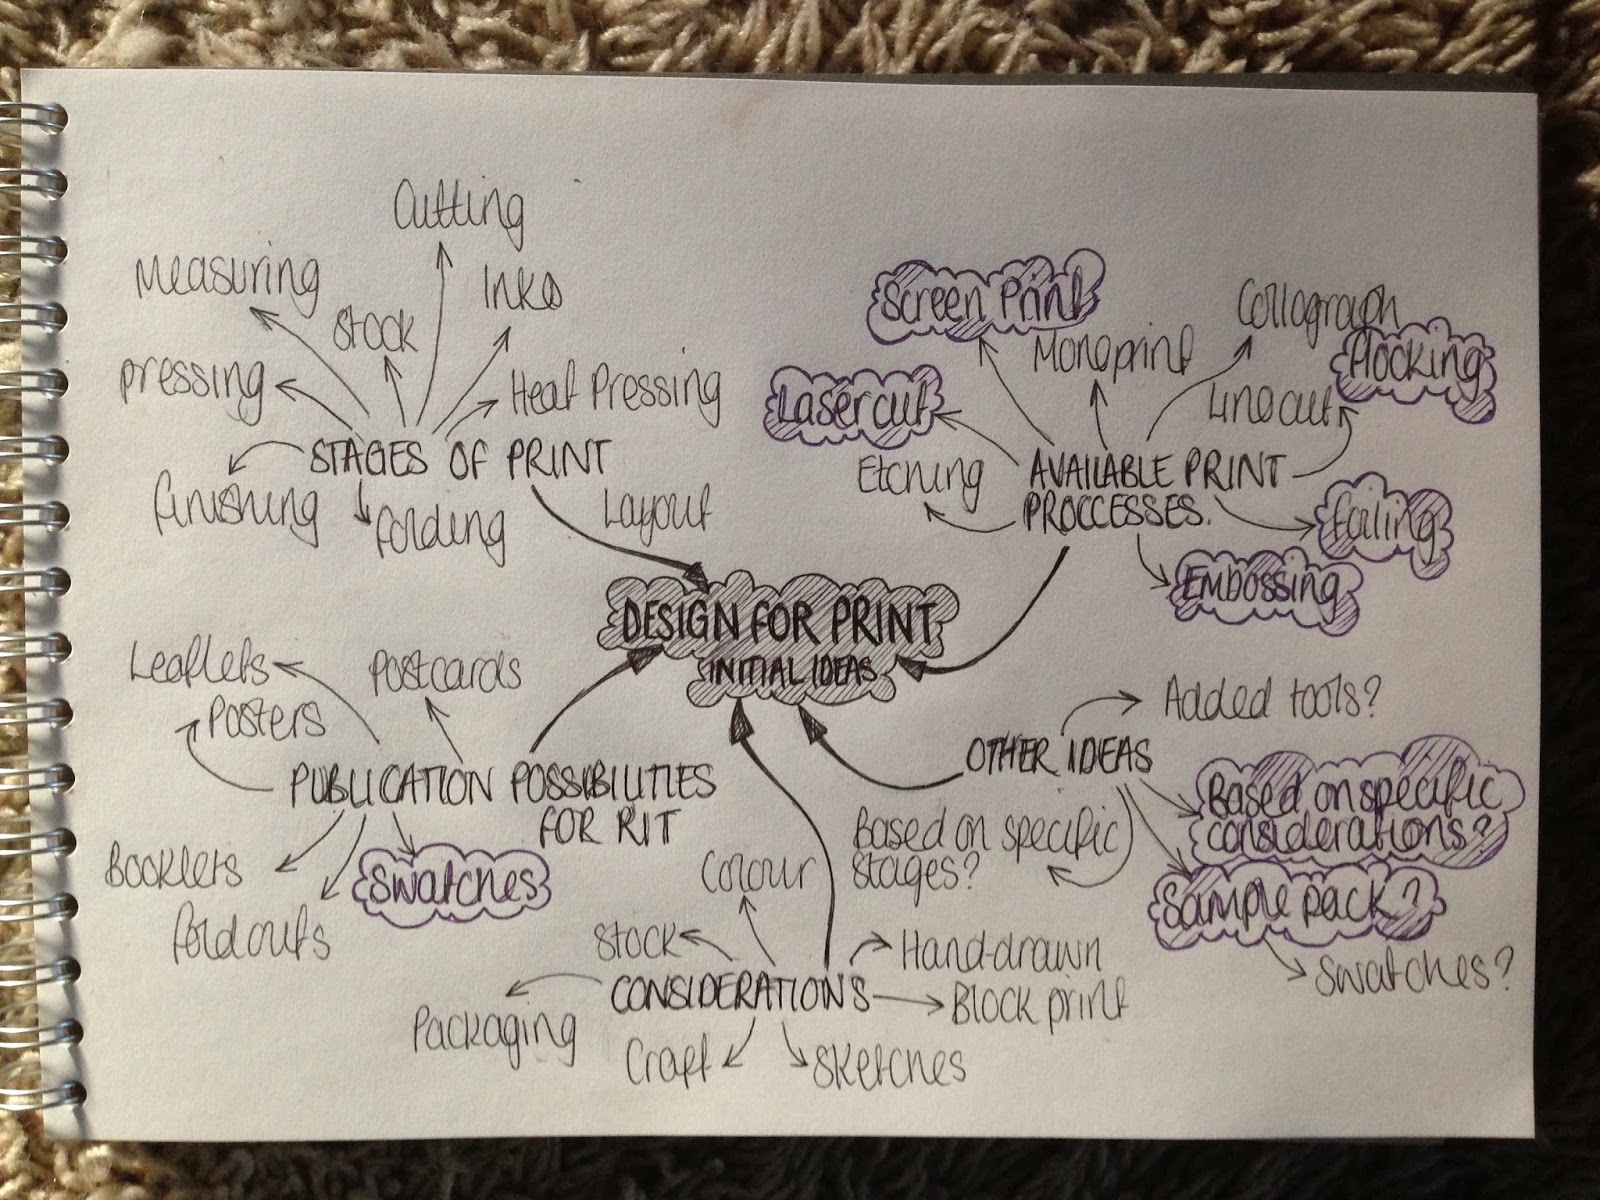 Cutting
Measuring
Inks
Stock
pressing
Heat Pressing
STAGES OF PRINT
finishing
folding
Layout
Screen Print
Collograph
Monoprint
flocking
Laser cut
Lino cut
Etching
AVAILABLE PRINT
PROCCESSES.
foiling
Embossing
DESIGN FOR PRINT
INITIAL IDEAS
Leaflets
Postcards
Posters
PUBLICATION POSSIBILITIES
FOR RIT
Booklets
Swatches
fold outs
OTHER IDEAS
Added tools?
Based on specific
considerations?
Based on specific
stages?
Sample pack?
Swatches?
Colour
Stock
Hand-drawn
CONSIDERATIONS
Block print
Packaging
Craft
Sketches